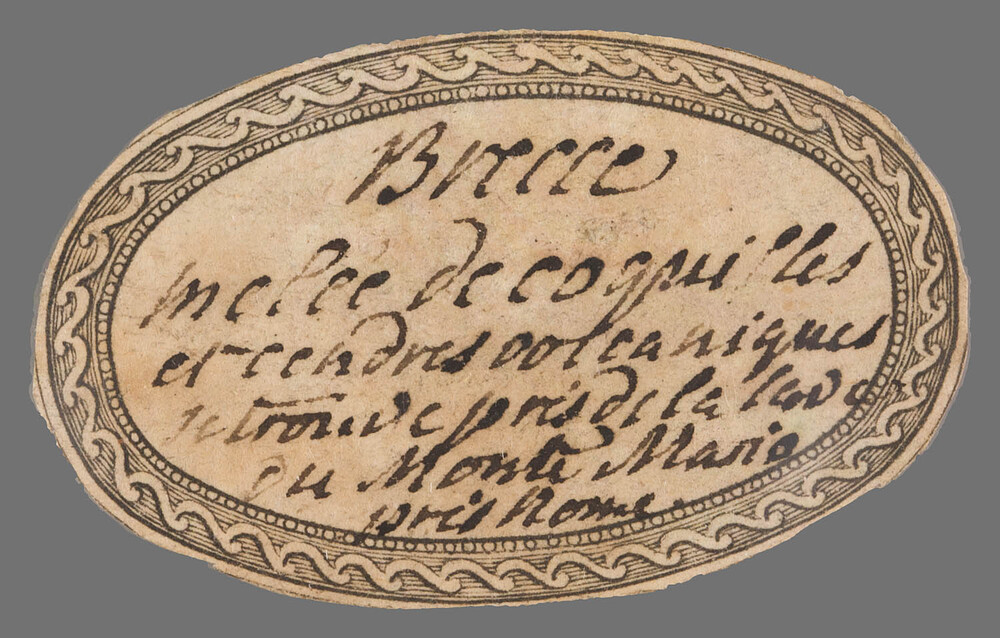 Brecce
melée de coquilles
et cendres volcaniques
se trouve pris de la lave
du Monte Mario
pris Rome.